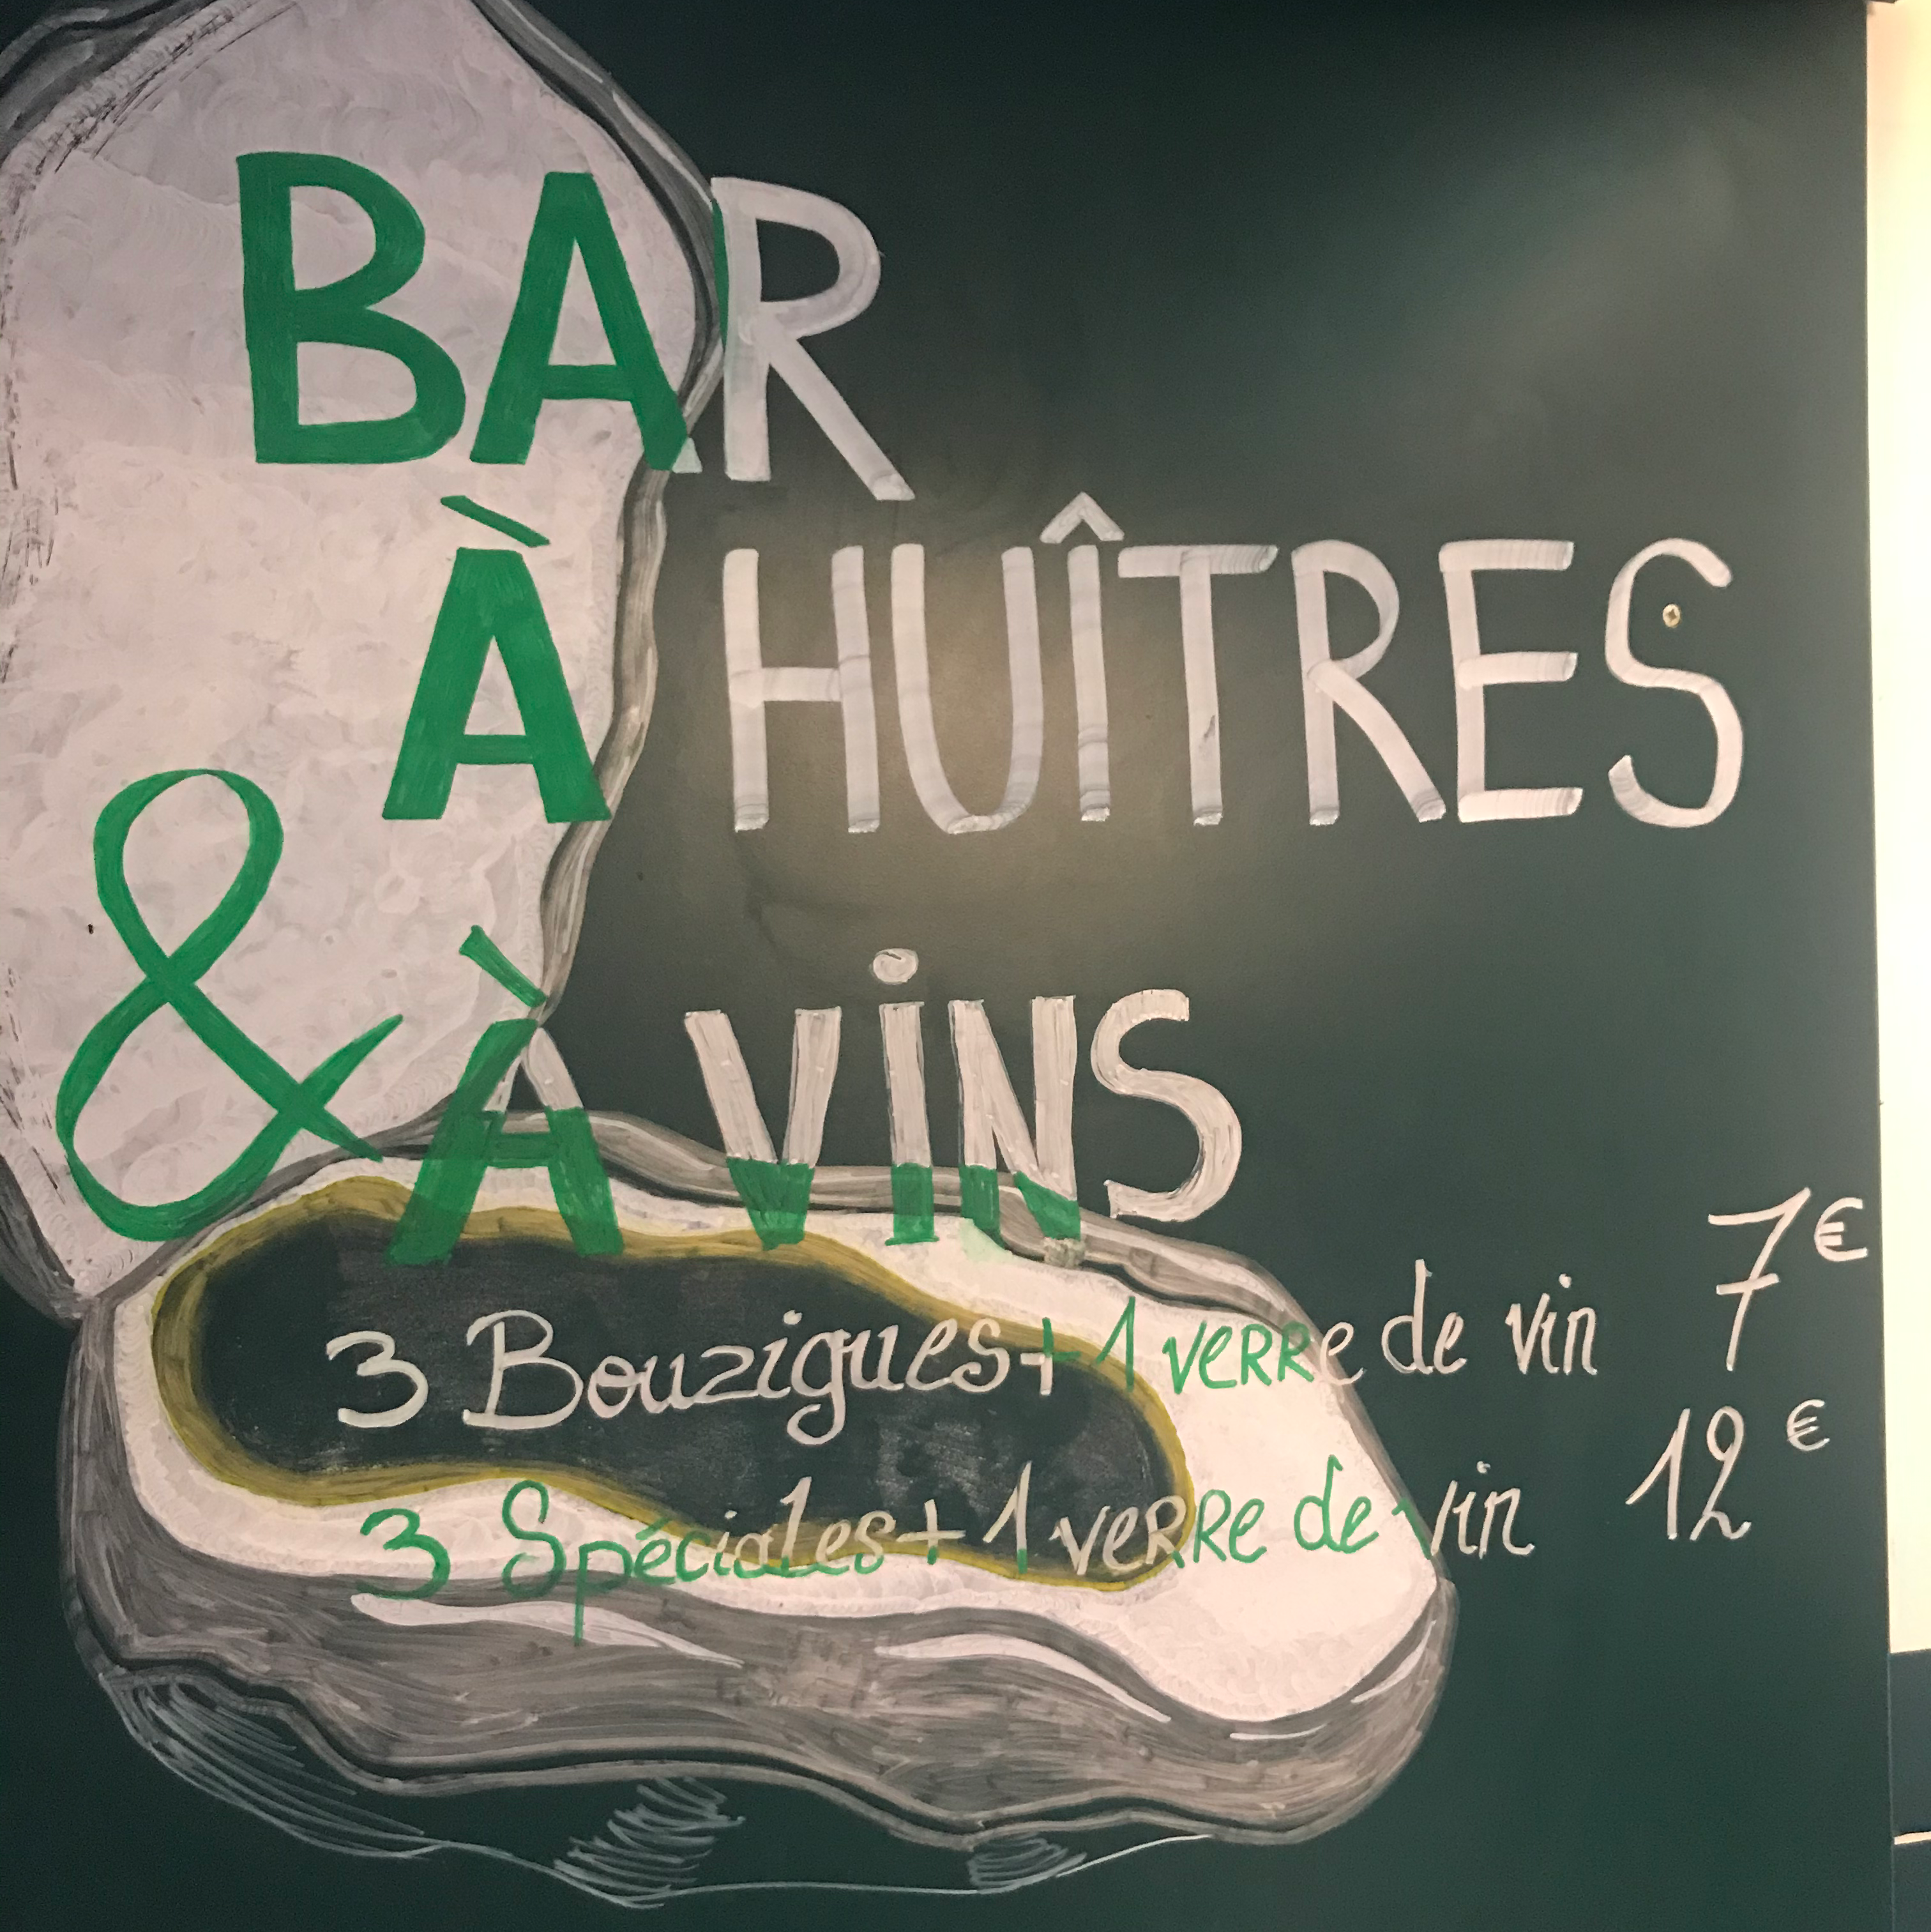 BAR
À HUÎTRES
& À ViNS
3 Bouzigues + 1 verre de vin 7€
3 Spéciales + 1 verre de vin 12€